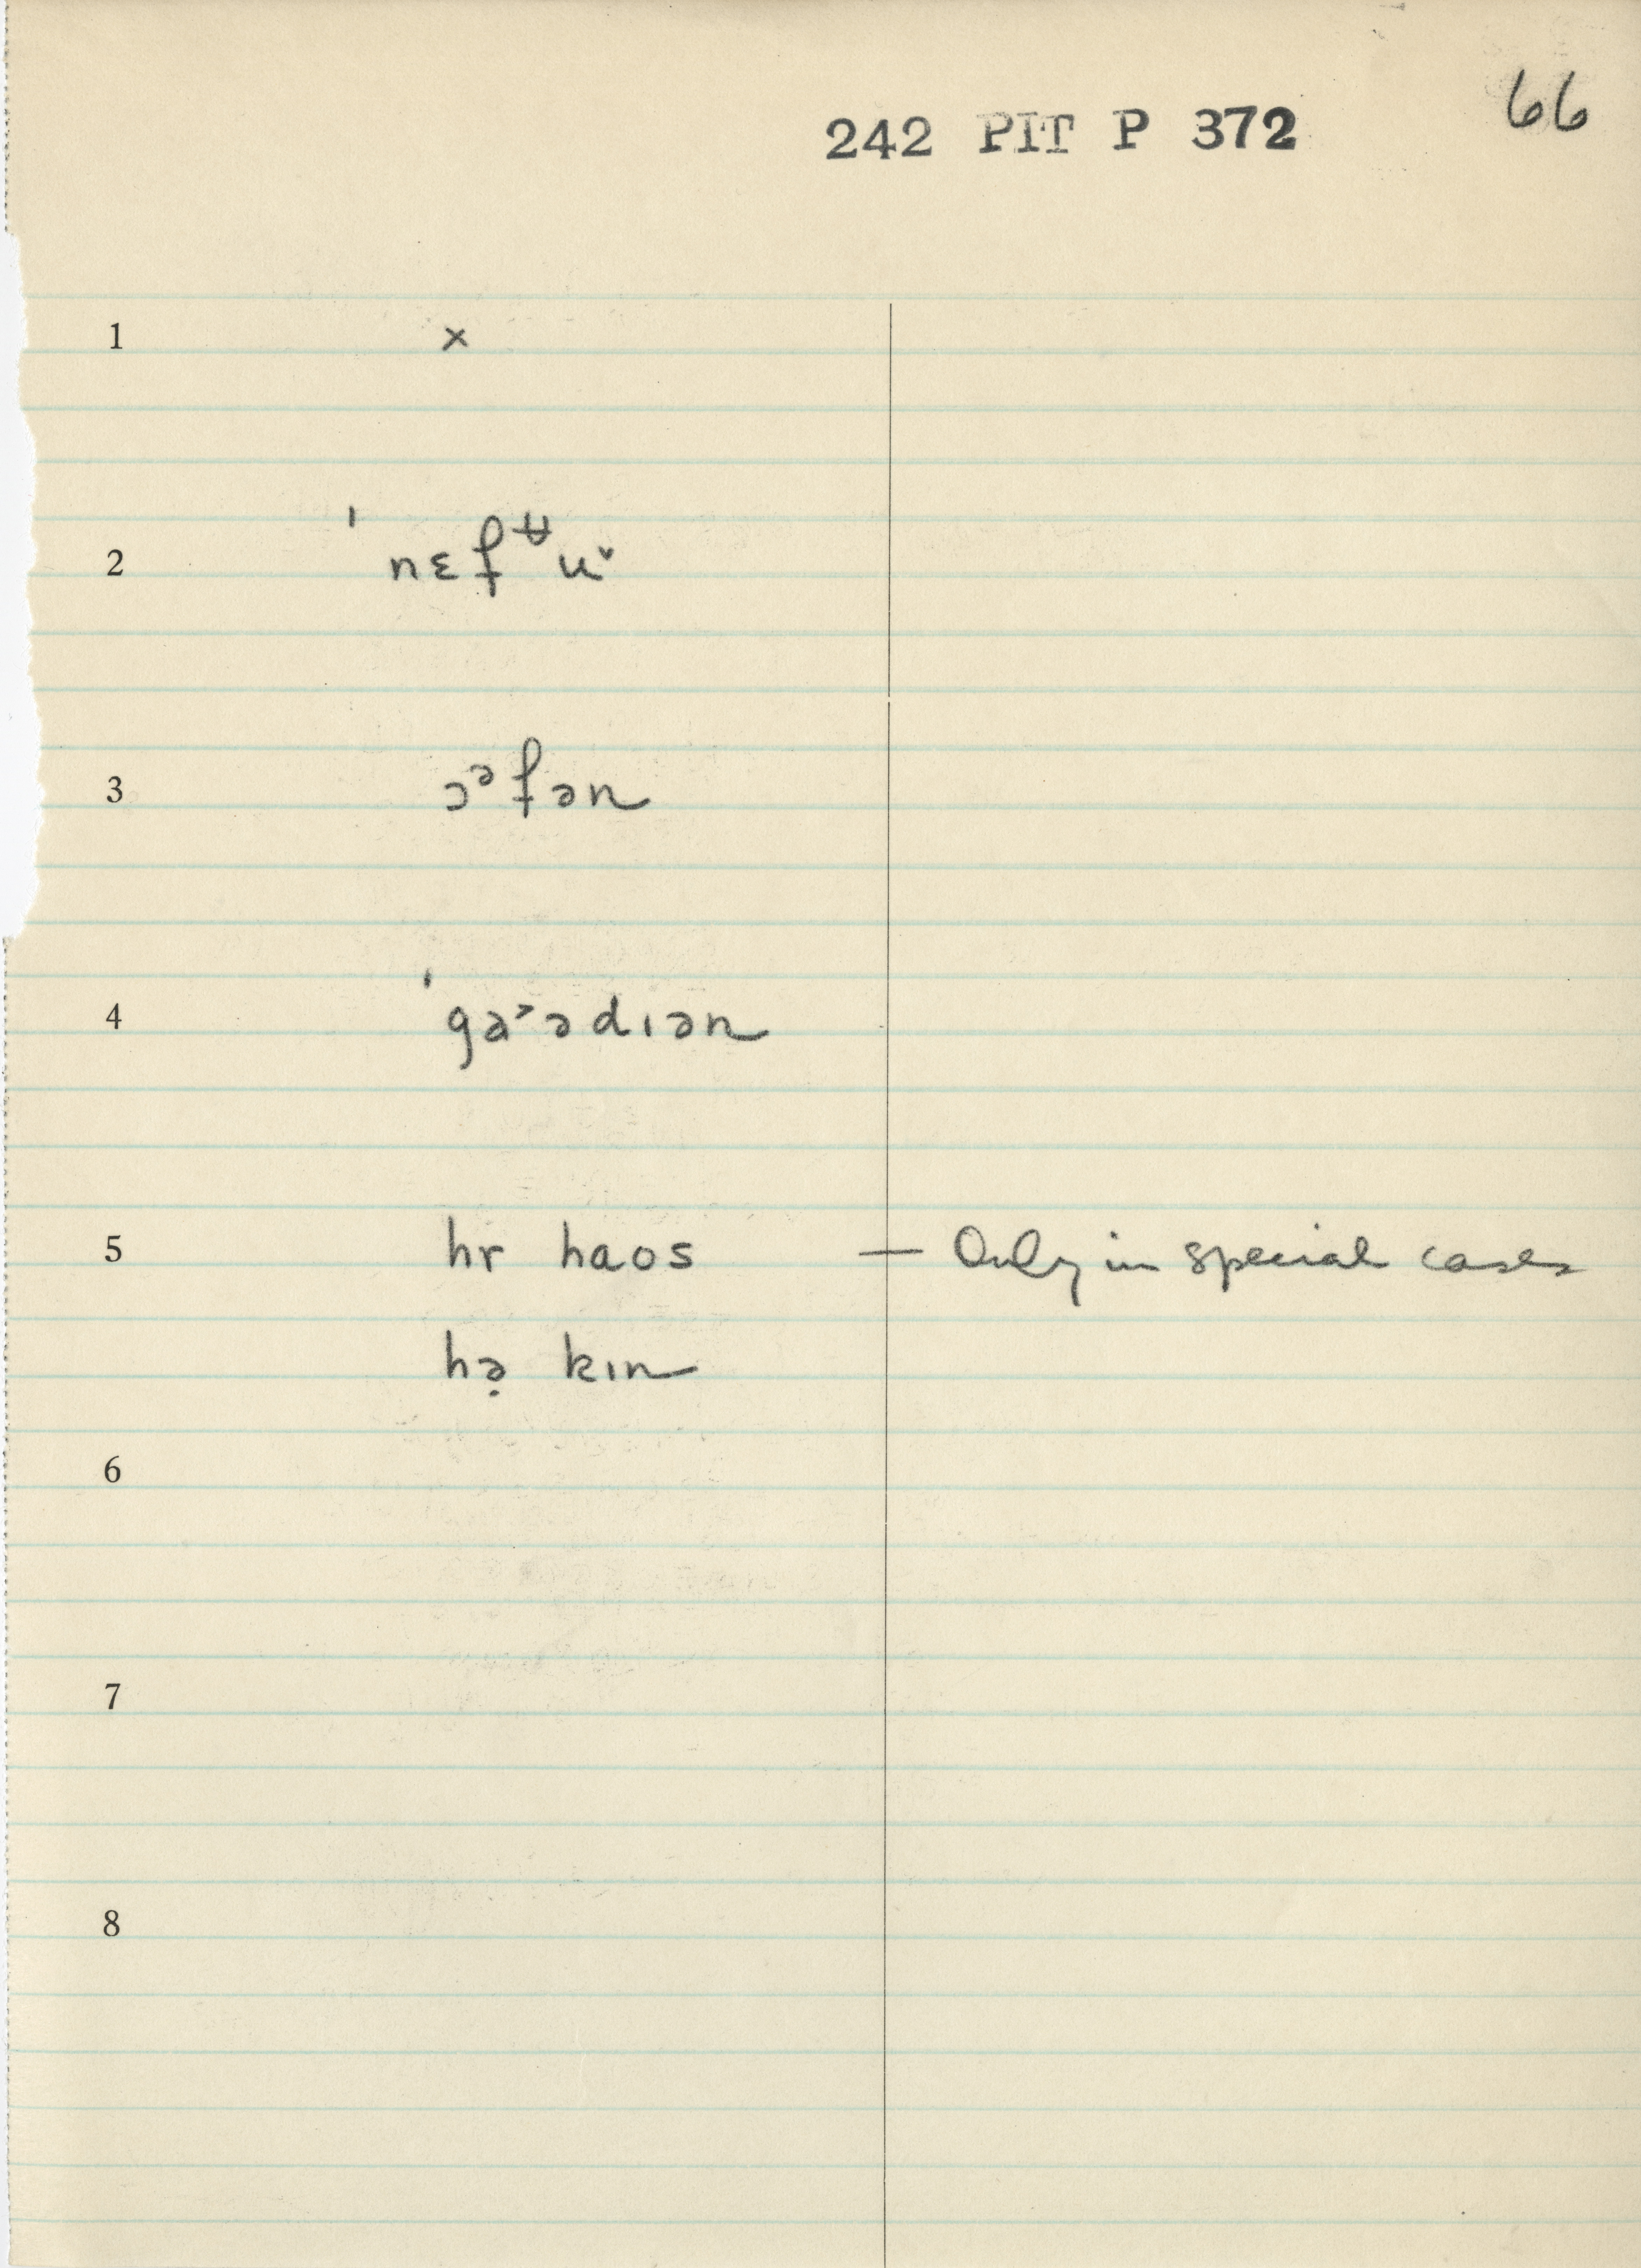 66
242 PIT P 372
1 ×
2 ˈnɛfʉ̶u˅
3 ɔᵊfən
4 ˈgɑ˃ədɪən
5 hr haos — Only in special cases
hə̣ kɪn
6
7
8